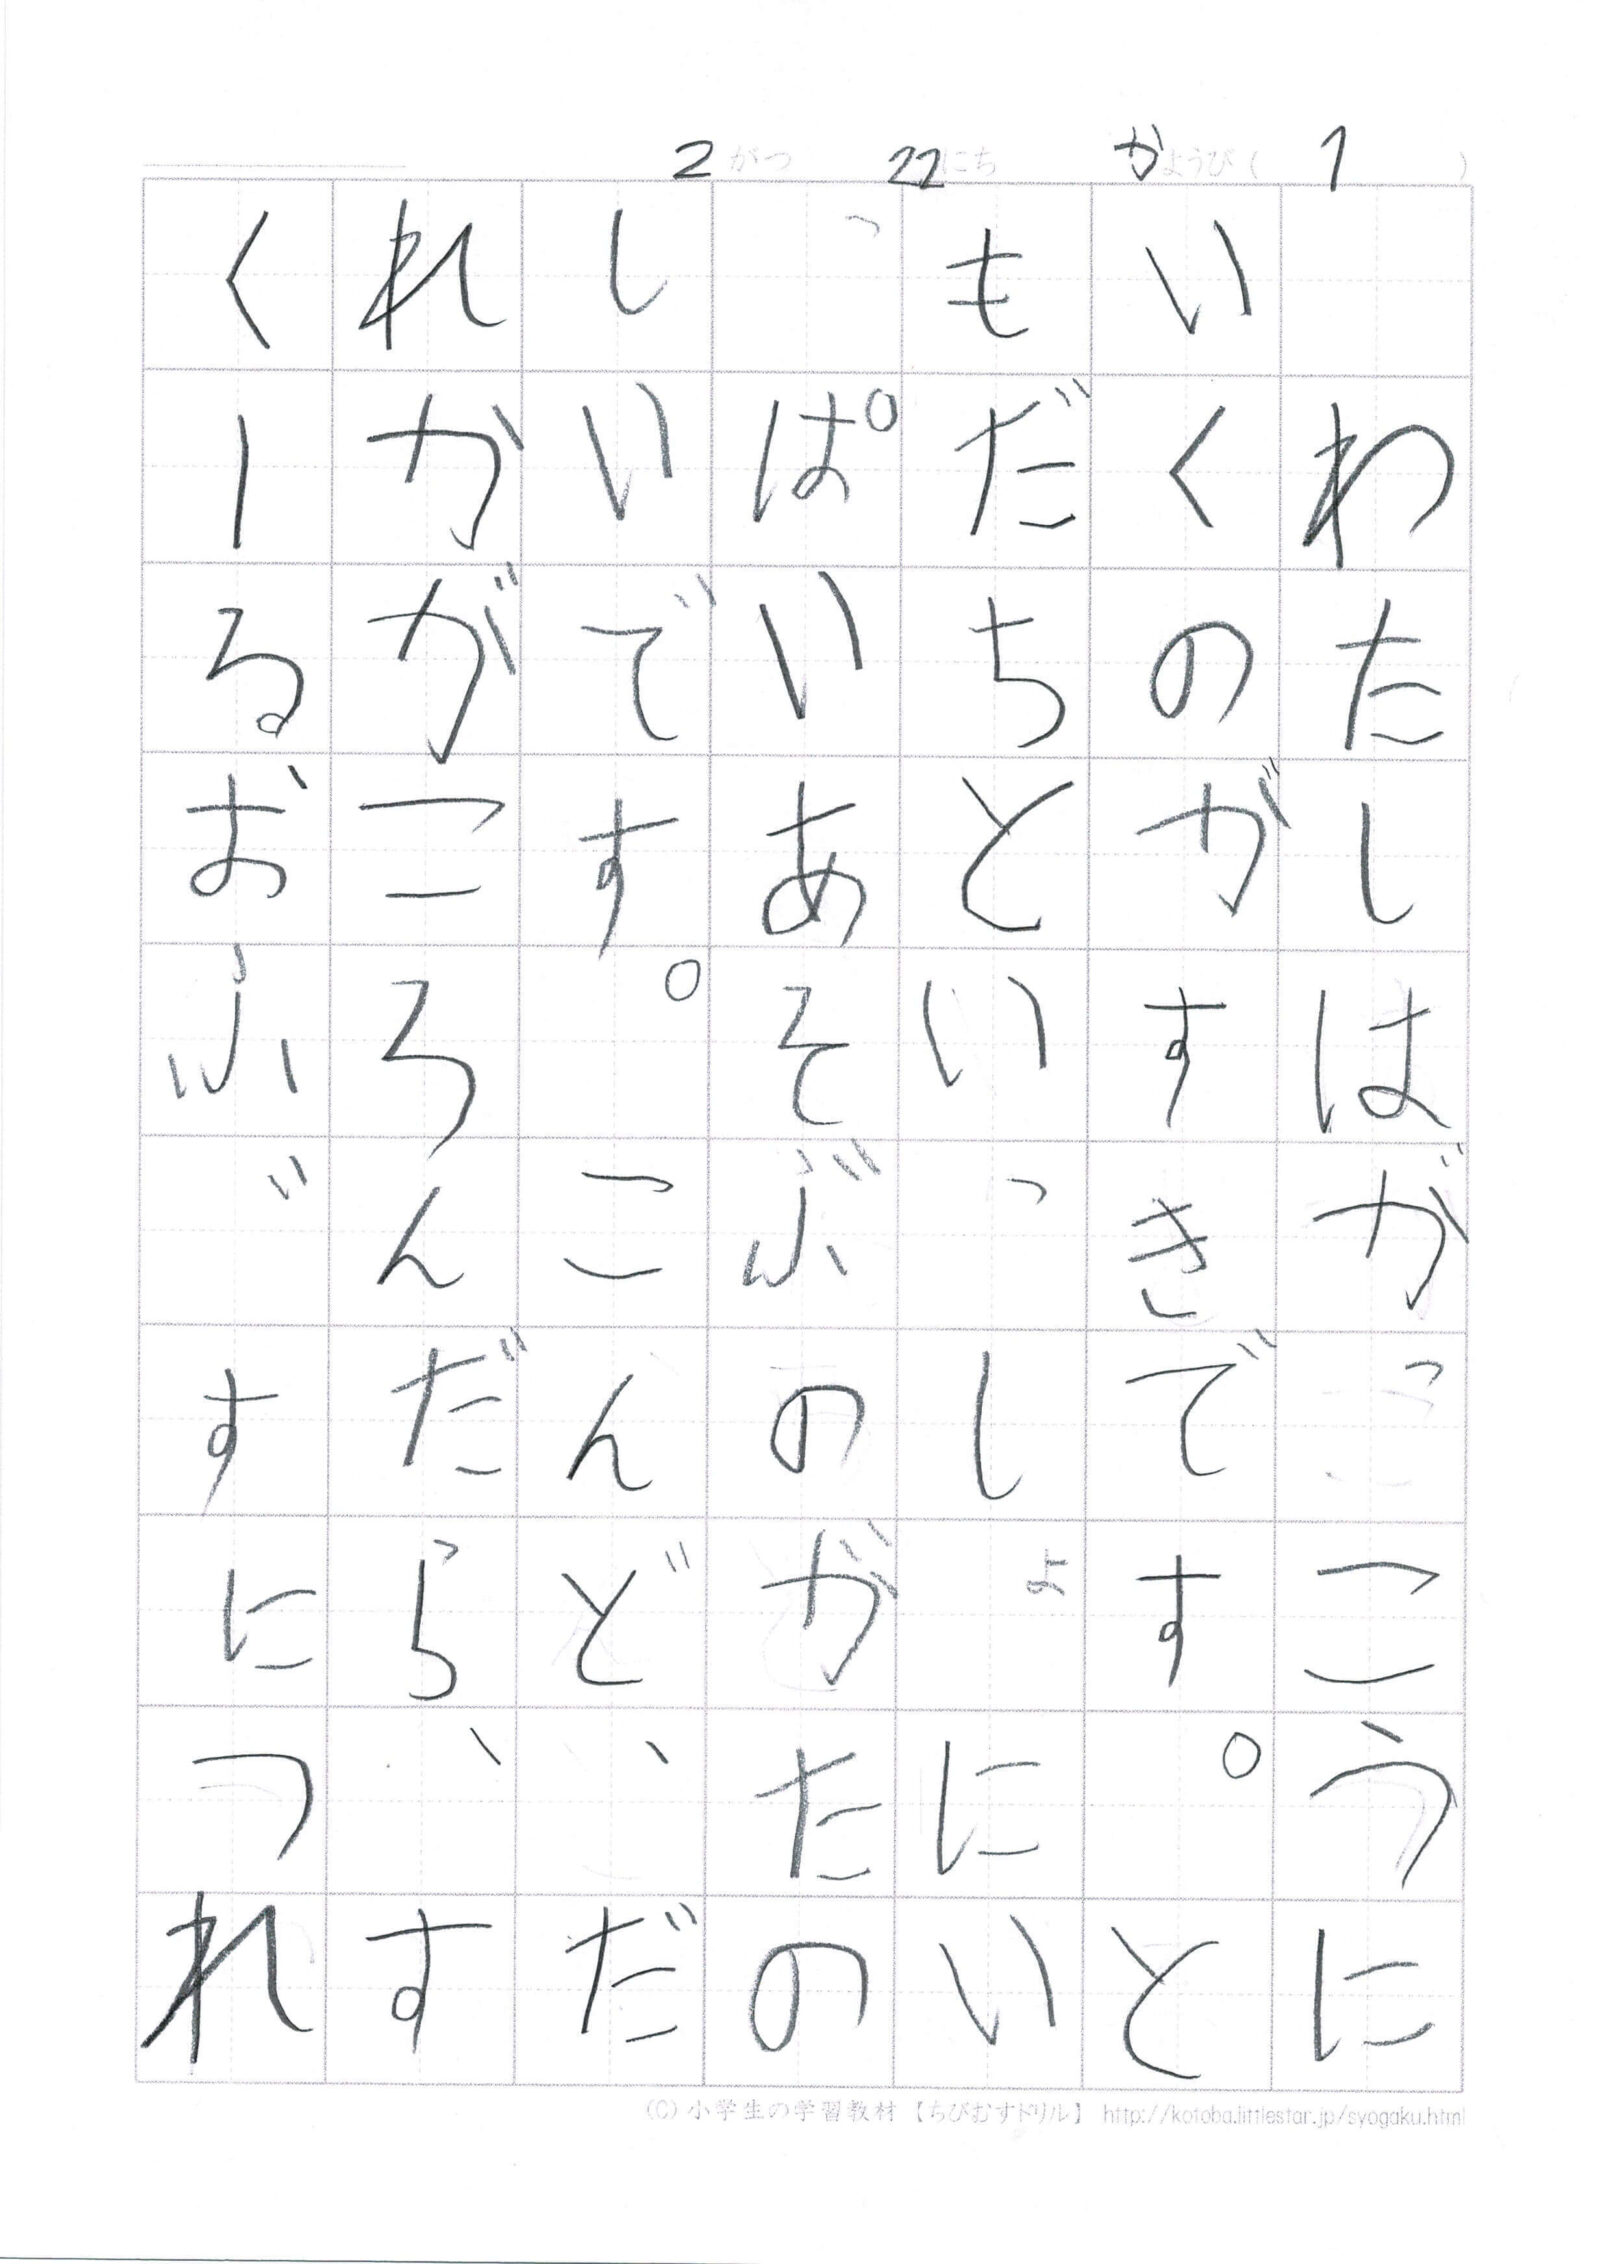 2がつ 22にち かようび( 1 )
わたしはがっこうに
いくのがすきです。と
もだちといっしょにい
っぱいあそぶのがたの
しいです。こんど、だ
れかがころんだら、す
くーるおふぃすにつれ
(C) 小学生の学習教材 【ちびむすドリル】 http://kotoba.littlestar.jp/syogaku.html